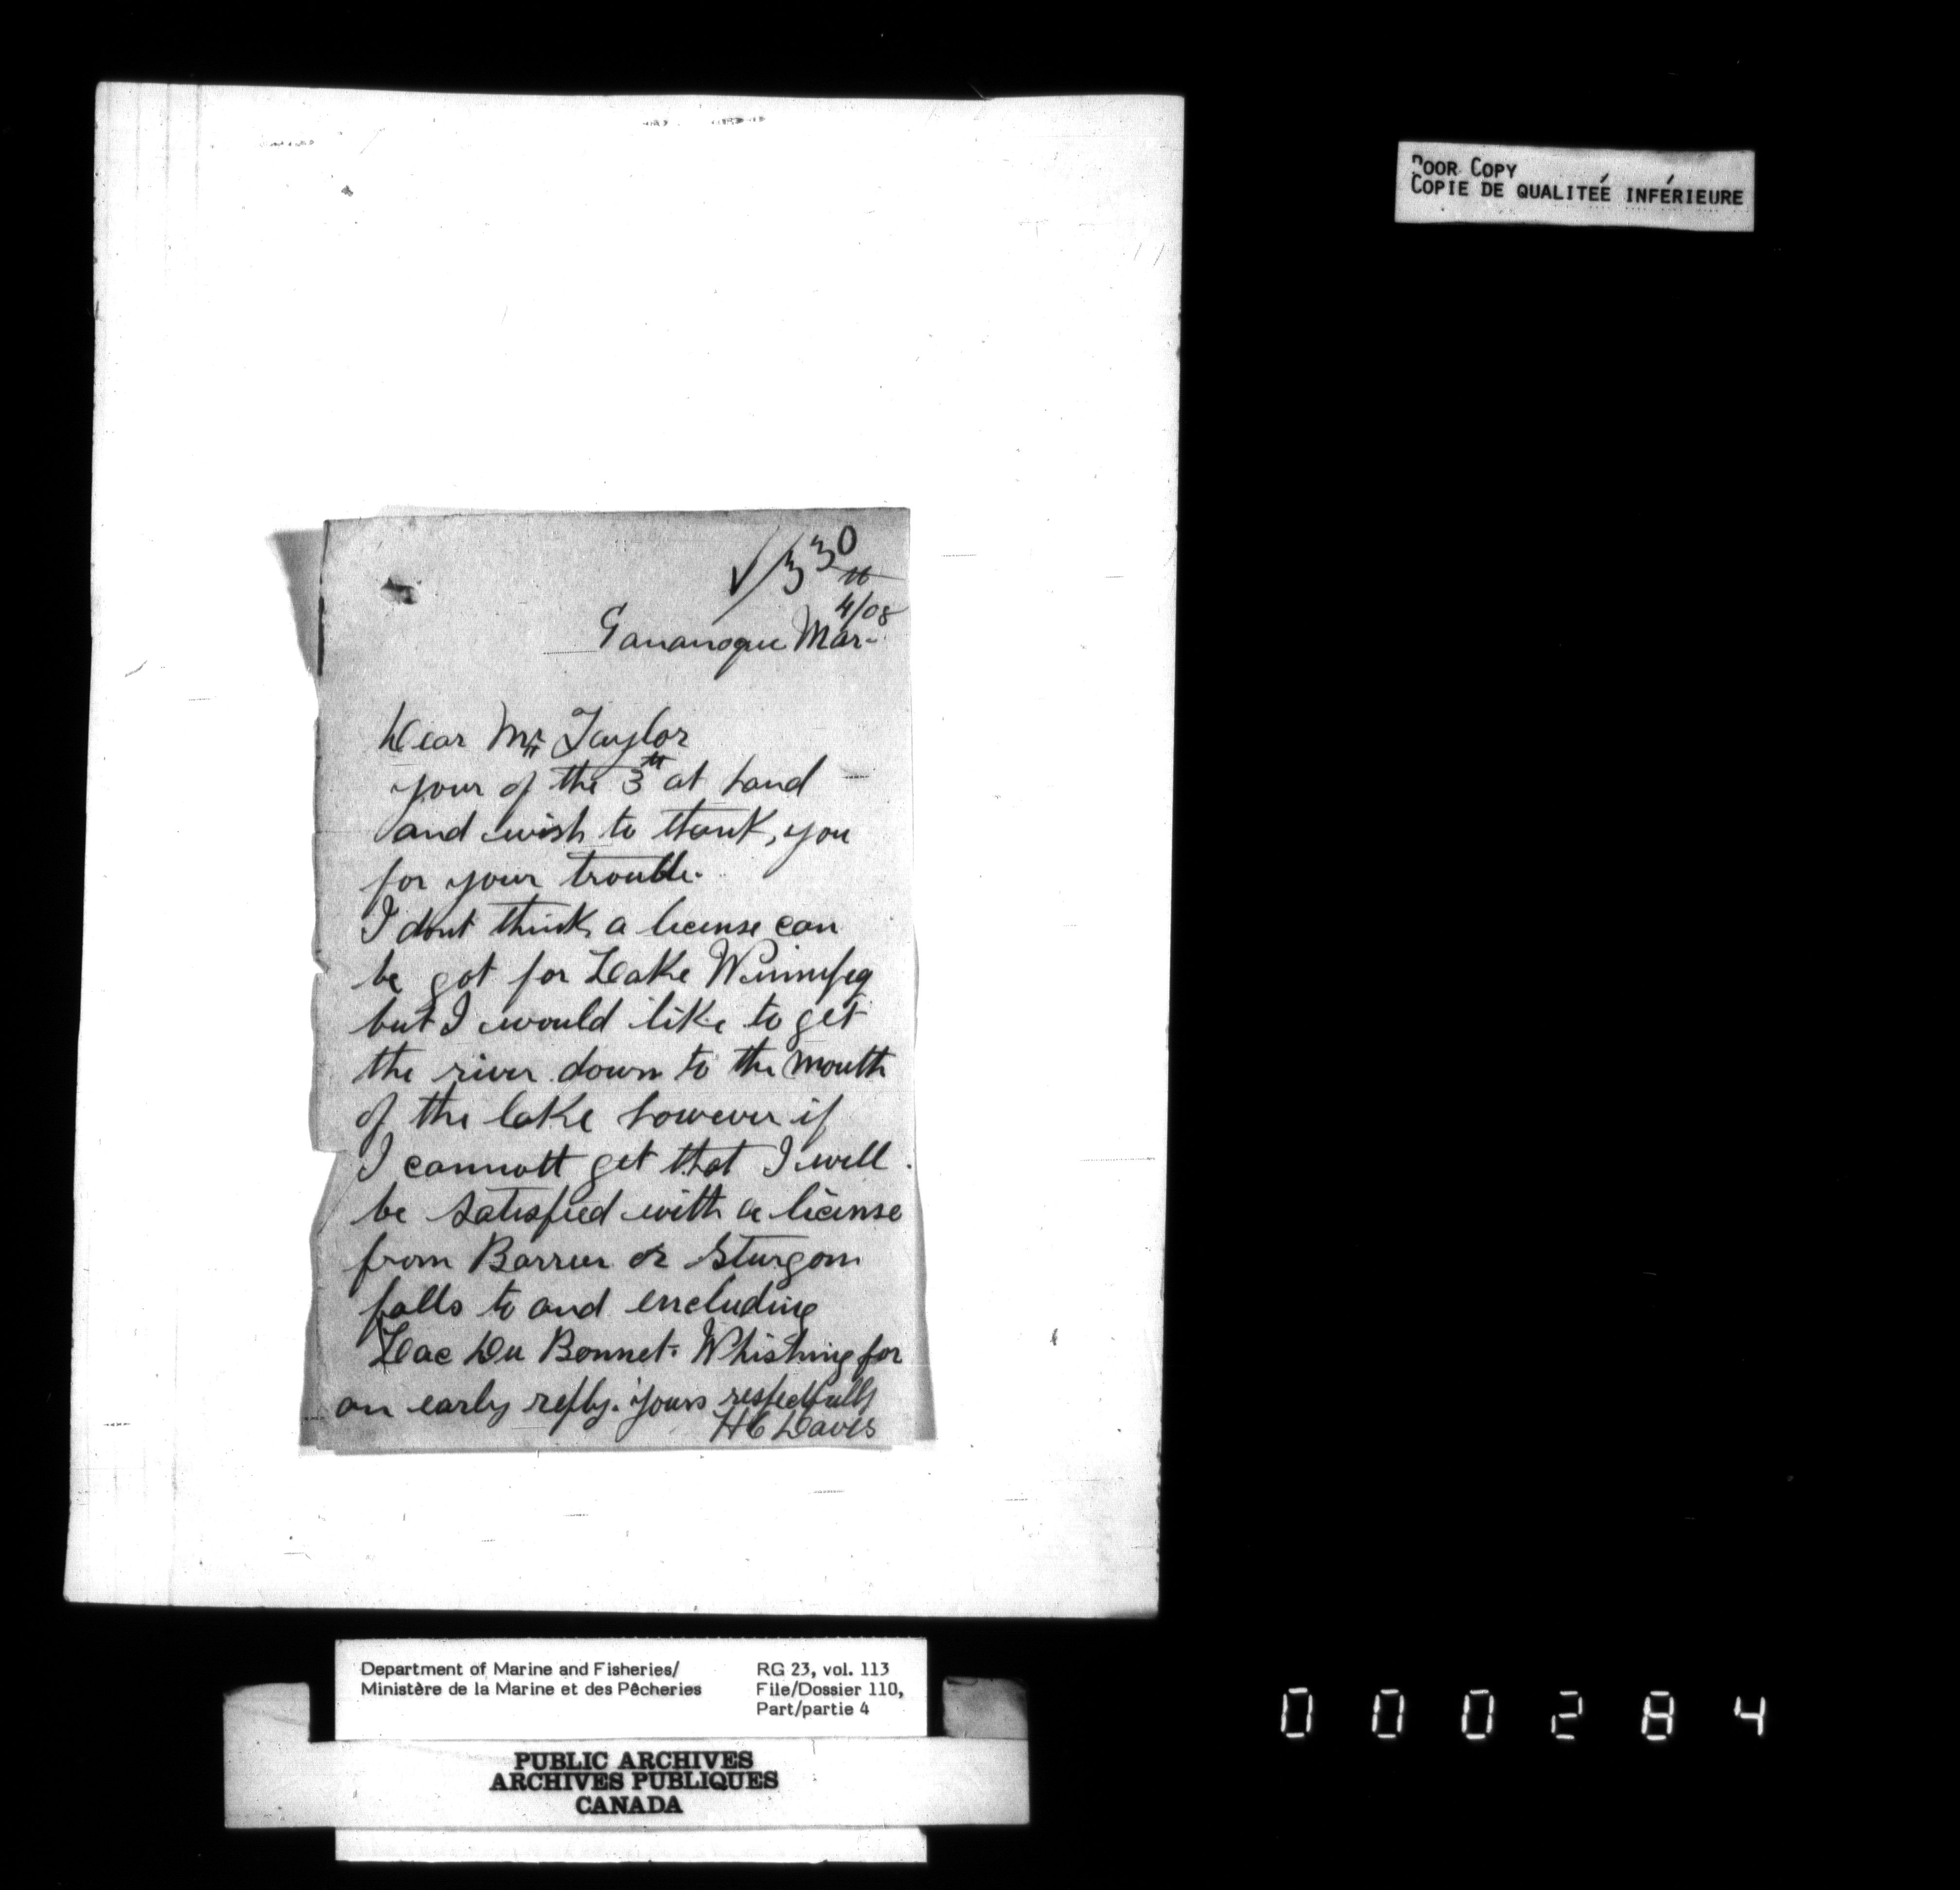 POOR COPY
COPIE DE QUALITEÉ INFÉRIEURE
330
4/08
Gananoque Mar-
Dear Mr Taylor
your of the 3rd at hand
and wish to thank, you
for your trouble.
I dont think a license can
be got for Lake Winnipeg
but I would like to get
the river down to the mouth
of the lake however if
I cannott get that I will
be satisfied with a license
from Barrier or Sturgon
falls to and encluding
Lac Du Bonnet. Whishing for
an early reply. Yours respectfully
HC Davis
Department of Marine and Fisheries/
Ministère de la Marine et des Pêcheries
RG 23, vol. 113
File/Dossier 110,
Part/partie 4
PUBLIC ARCHIVES
ARCHIVES PUBLIQUES
CANADA
000284